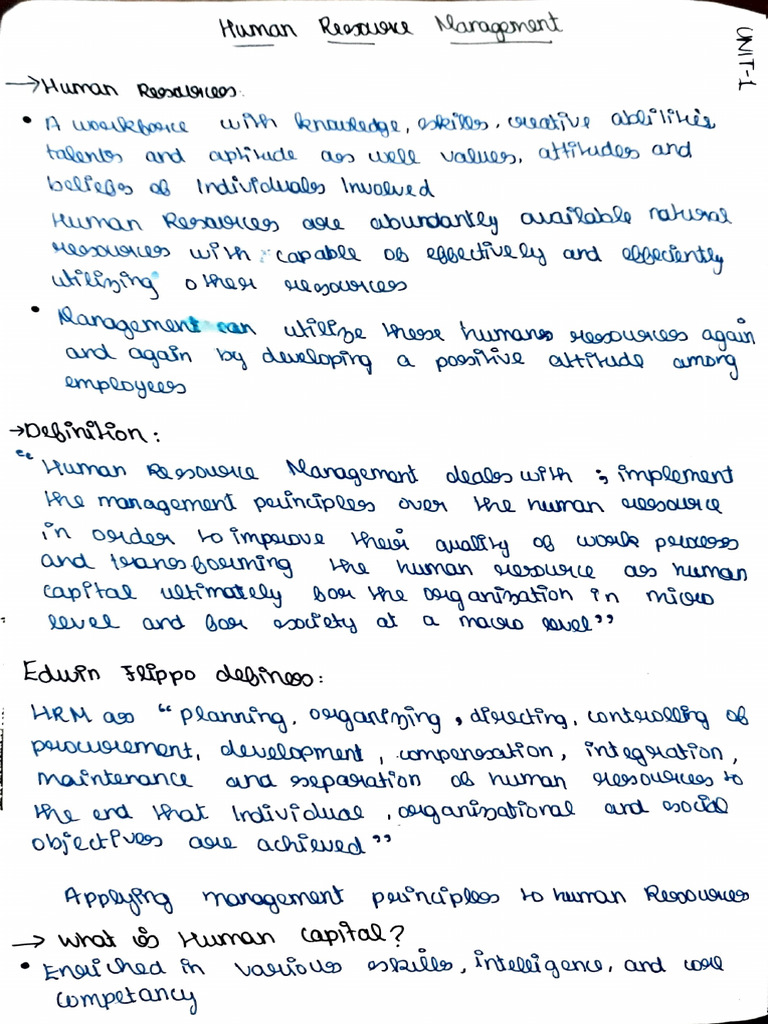 Human Resource Management
UNIT-1
→Human Resources:
• A workforce with knowledge, skills, creative abilities
talents and aptitude as well values, attitudes and
beliefs of Individuals Involved
Human Resources are abundantly available natural
resources with capable of effectively and effeciently
utilizing other resources
• Management can utilize these humans resources again
and again by developing a positive attitude among
employees
→Definition:
"Human Resource Management deals with ; implement
the management principles over the human resource
in order to improve their quality of work process
and transforming the human resource as human
capital ultimately for the organization in micro
level and for society at a macro level"
Edwin Flippo defines:
HRM as "planning, organizing, directing, controlling of
procurement, development, compensation, integration,
maintenance and separation of human resources to
the end that Individual, organizational and social
objectives are achieved"
Applying management principles to human Resources
→ What is Human Capital?
• Enriched in various skills, intelligence, and core
competancy